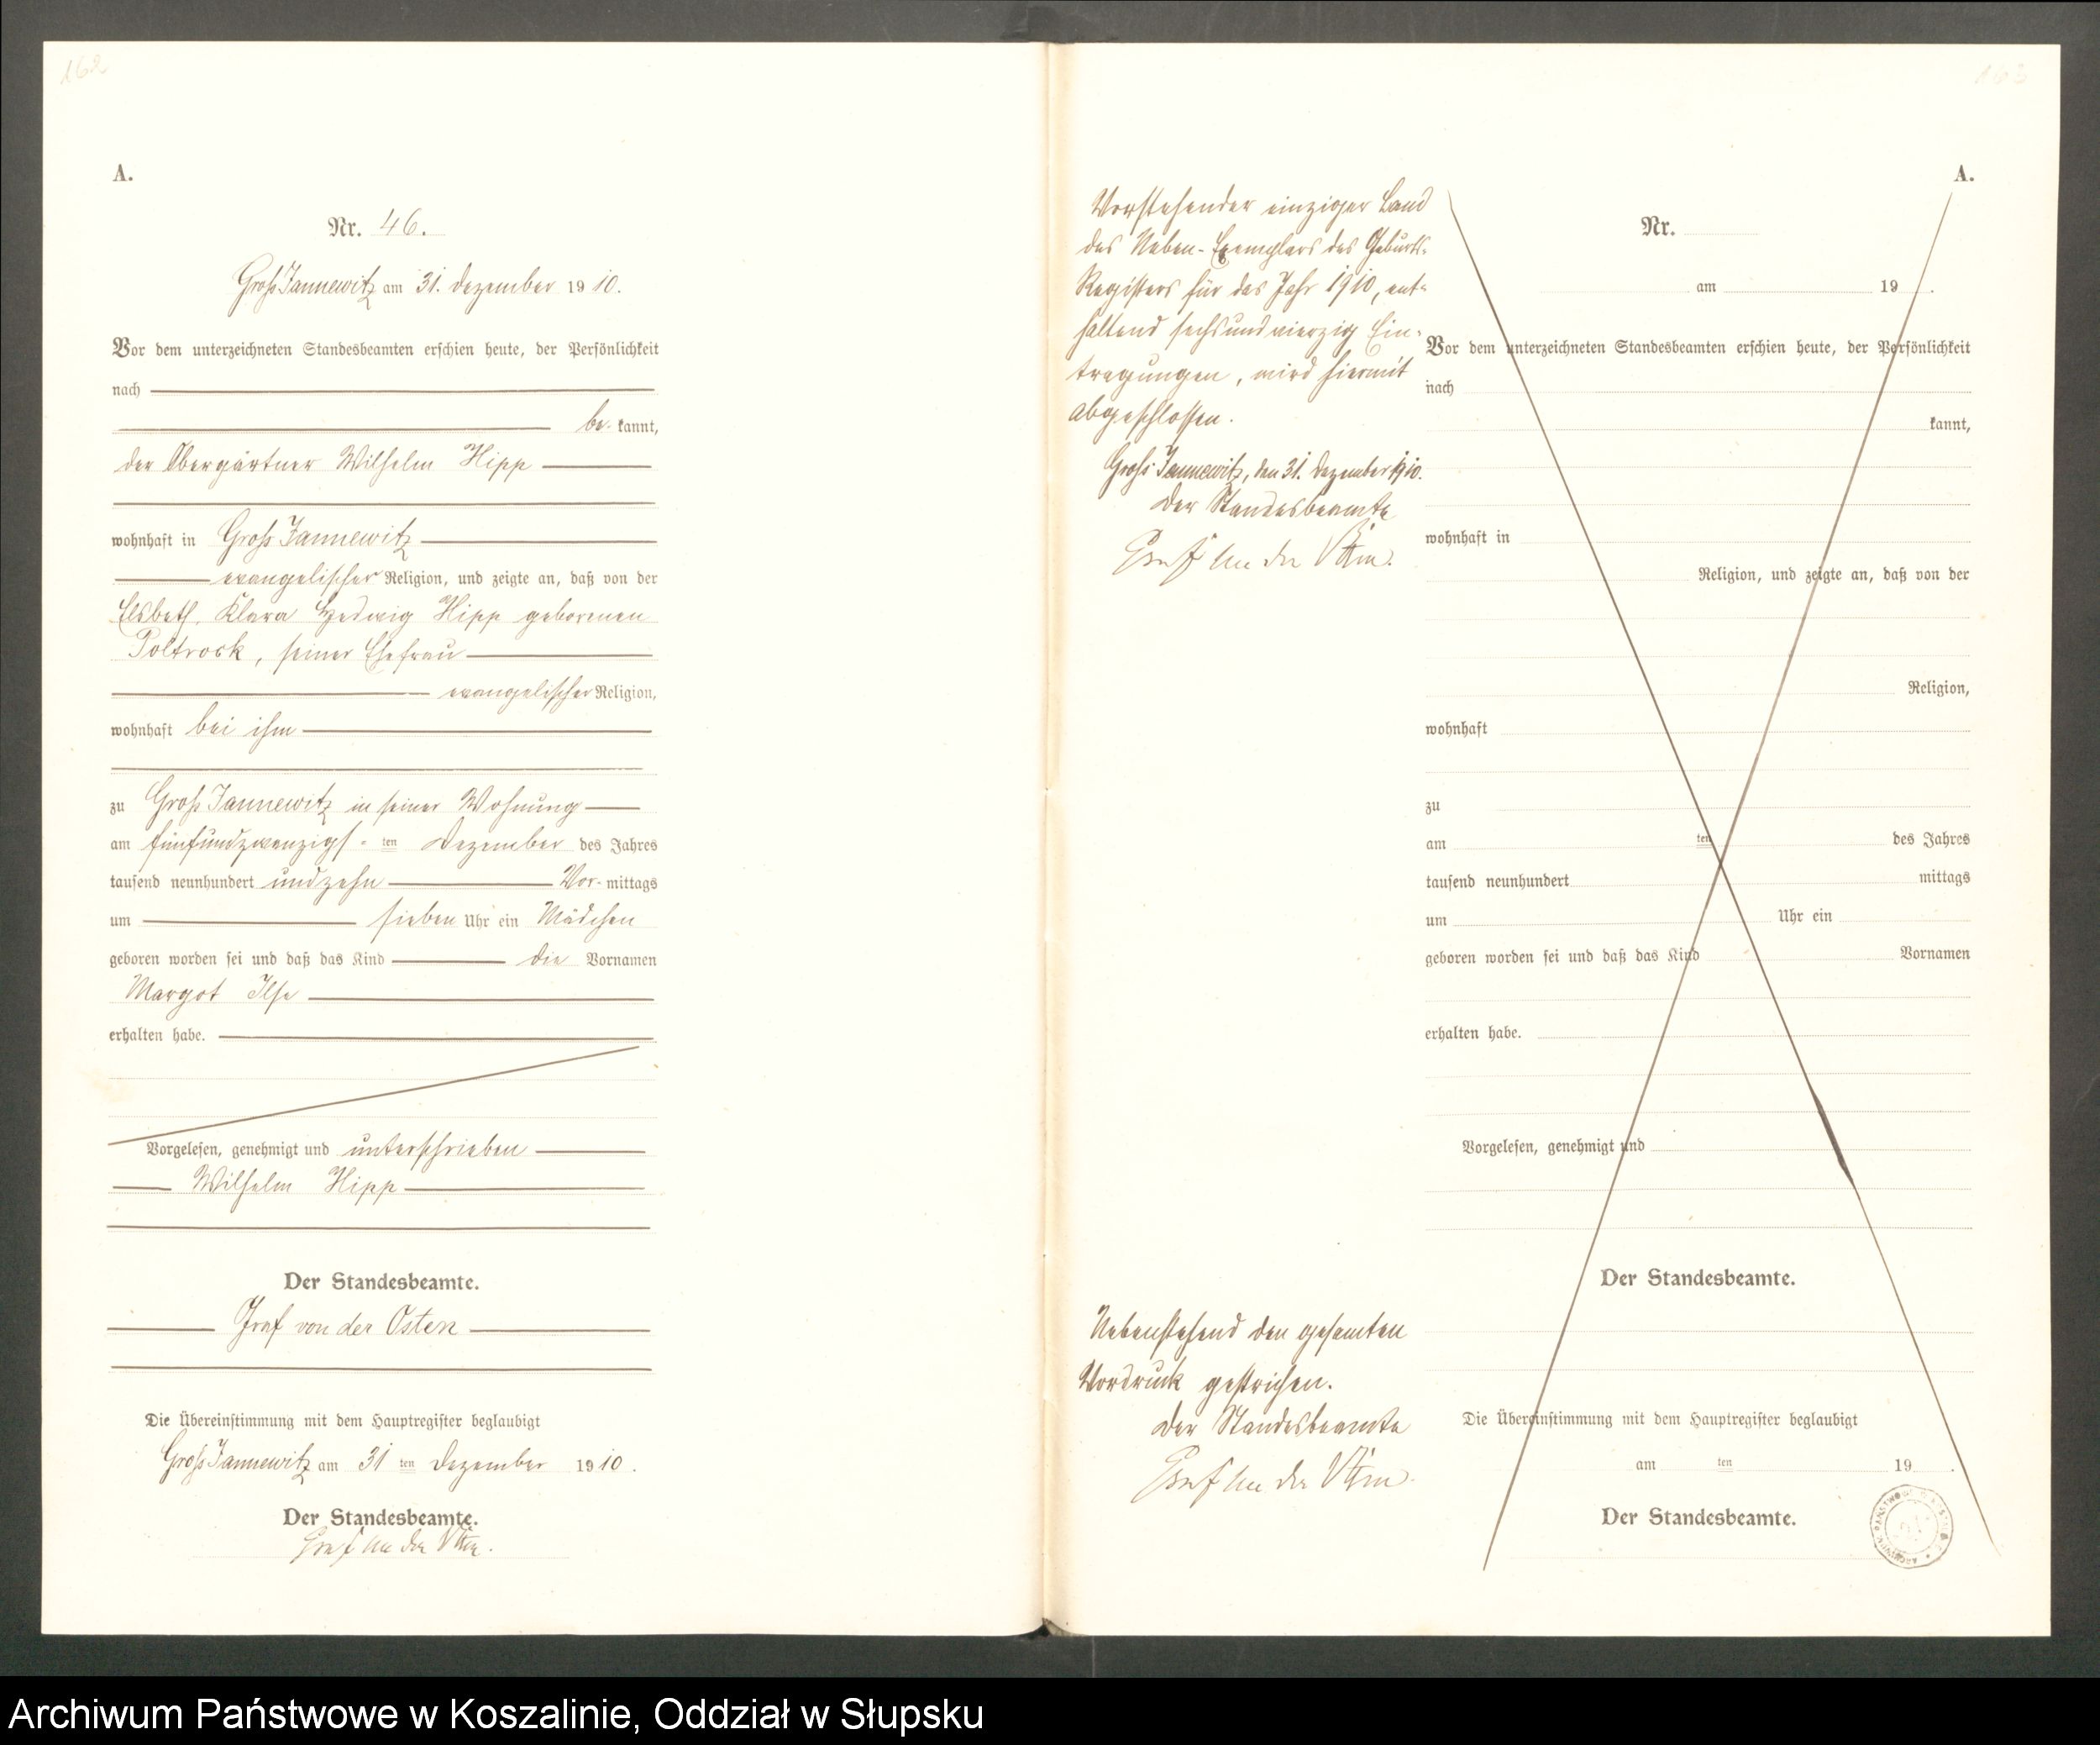 162
A.
Nr. 46.
Groß Jannewitz am 31. Dezember 1910.
Vor dem unterzeichneten Standesbeamten erschien heute, der Persönlichkeit
nach
be- kannt,
der Obergärtner Wilhelm Hipp
wohnhaft in Groß Jannewitz
evangelischer Religion, und zeigte an, daß von der
Elsbeth Klara Hedwig Hipp geborenen
Poltrock, seiner Ehefrau
evangelischer Religion,
wohnhaft bei ihm
zu Groß Jannewitz in seiner Wohnung
am fünfundzwanzigs- ten Dezember des Jahres
tausend neunhundert und zehn Vor- mittags
um sieben Uhr ein Mädchen
geboren worden sei und daß das Kind die Vornamen
Margot Ilse
erhalten habe.
Vorgelesen, genehmigt und unterschrieben
Wilhelm Hipp
Der Standesbeamte.
Graf von der Osten
Die Übereinstimmung mit dem Hauptregister beglaubigt
Groß Jannewitz am 31 ten Dezember 1910.
Der Standesbeamte.
Graf von der Osten.
163
Vorstehender einziger Band
des Neben-Exemplars des Geburts-
Registers für das Jahr 1910, ent-
haltend sechsundvierzig Ein-
tragungen, wird hiermit
abgeschlossen.
Groß Jannewitz, den 31. Dezember 1910.
Der Standesbeamte
Graf von der Osten.
Nebenstehend den gesamten
Vordruck gestrichen.
Der Standesbeamte
Graf von der Osten.
A.
Nr.
am 19 .
Vor dem unterzeichneten Standesbeamten erschien heute, der Persönlichkeit
nach
kannt,
wohnhaft in
Religion, und zeigte an, daß von der
Religion,
wohnhaft
zu
am ten des Jahres
tausend neunhundert mittags
um Uhr ein
geboren worden sei und daß das Kind Vornamen
erhalten habe.
Vorgelesen, genehmigt und
Der Standesbeamte.
Die Übereinstimmung mit dem Hauptregister beglaubigt
am ten 19 .
Der Standesbeamte.
Archiwum Państwowe w Koszalinie, Oddział w Słupsku